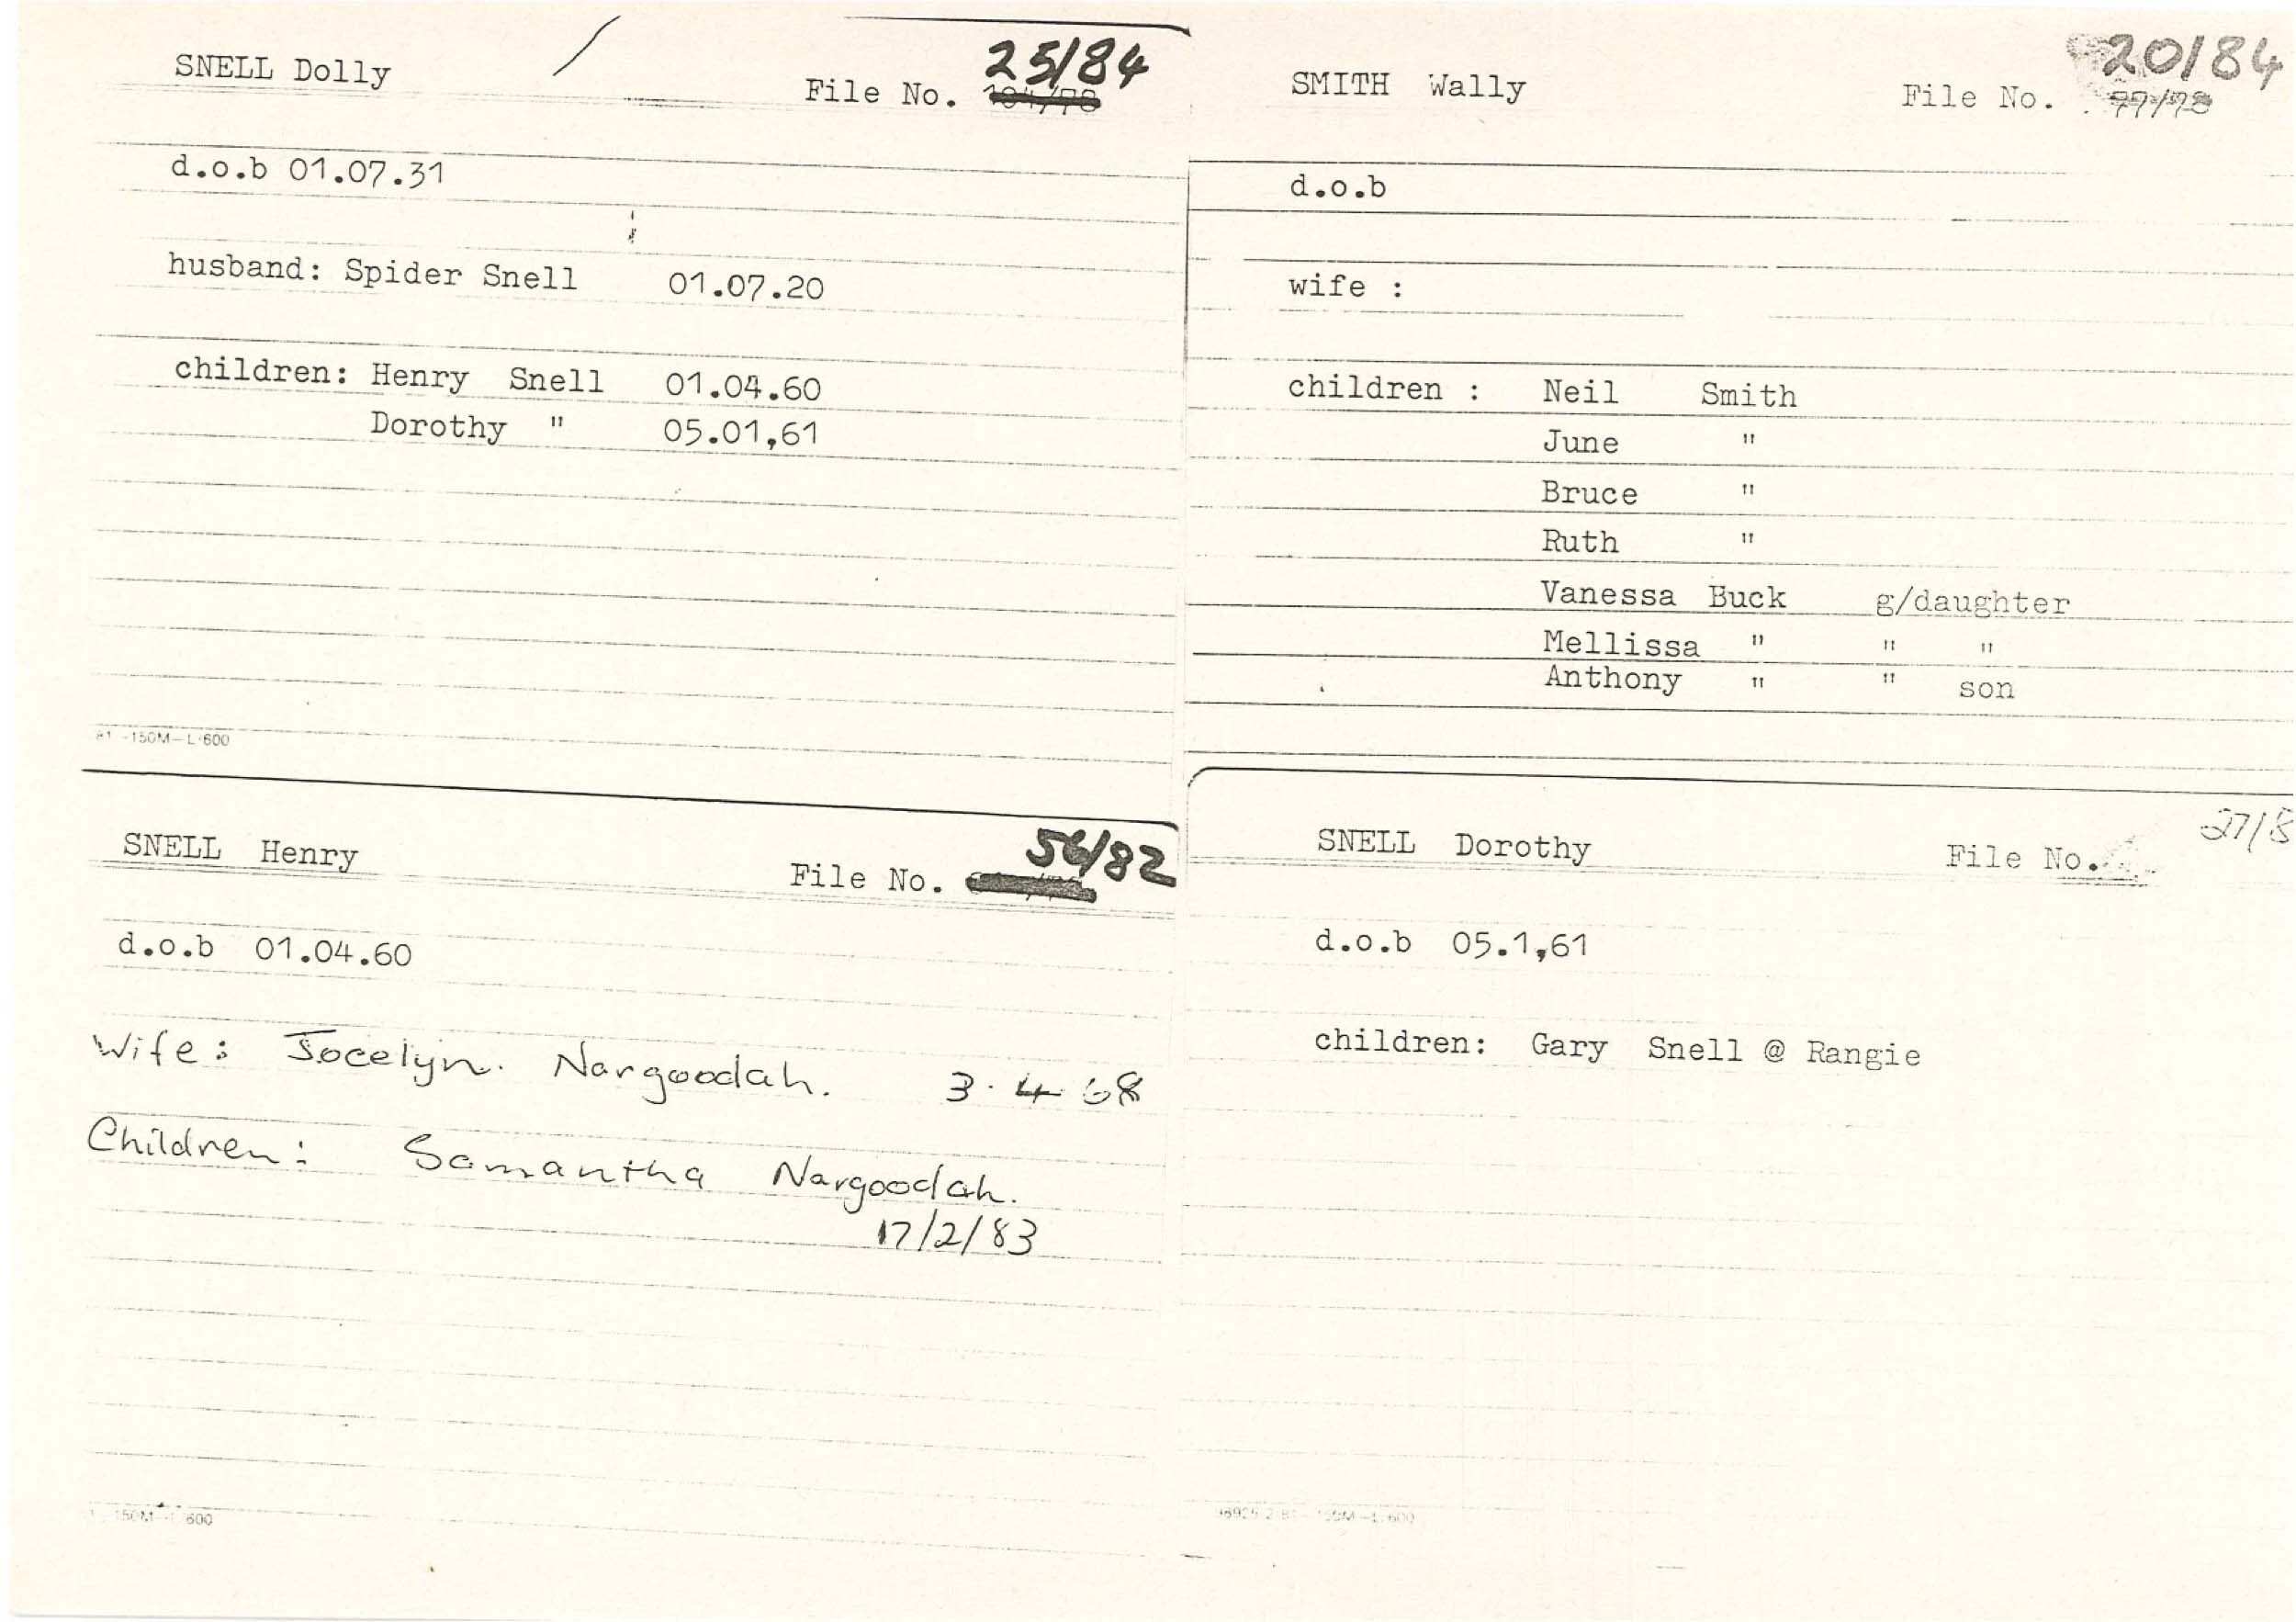 SNELL Dolly
25/84
File No.
d.o.b 01.07.31
husband: Spider Snell 01.07.20
children: Henry Snell 01.04.60
Dorothy " 05.01,61
-150M-L/600
SMITH Wally
20/84
File No. 77/78
d.o.b
wife :
children : Neil Smith
June "
Bruce "
Ruth "
Vanessa Buck g/daughter
Mellissa " " "
Anthony " " son
SNELL Henry
56/82
File No.
d.o.b 01.04.60
Wife: Jocelyn. Nargoodah. 3.4.68
Children: Samantha Nargoodah.
17/2/83
150M 600
SNELL Dorothy
27/8
File No.
d.o.b 05.1,61
children: Gary Snell @ Rangie